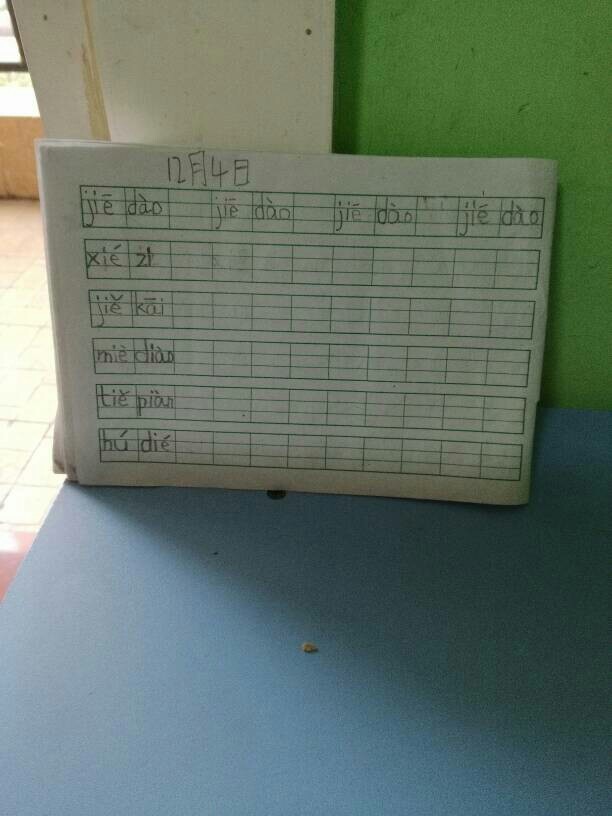 12月4日
jiē dào jiē dào jiē dào jiē dào
xié zi
jiě kāi
miè diào
tiě piàn
hú dié